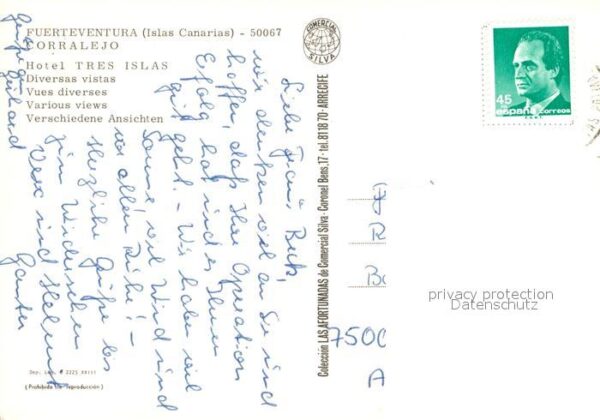 FUERTEVENTURA (Islas Canarias) - 50067
CORRALEJO
Hotel TRES ISLAS
Diversas vistas
Vues diverses
Various views
Verschiedene Ansichten
Dep. Leg.
(Prohibida la reproducción)
COMERCIAL
SILVA
Colección LAS AFORTUNADAS de Comercial Silva - Coronel Bens, 17 - tel. 81 18 70 - ARRECIFE
45
españa correos
Liebe Frau
wir denken viel an Sie und
hoffen, daß Ihre Operation
Erfolg hat und es Ihnen
gut geht. - Wir haben viel
Sonne, viel Wind und
vor allem Ruhe! -
Herzliche Grüße bis
zum Wiedersehen
und Helmut
7500
A
privacy protection
Datenschutz